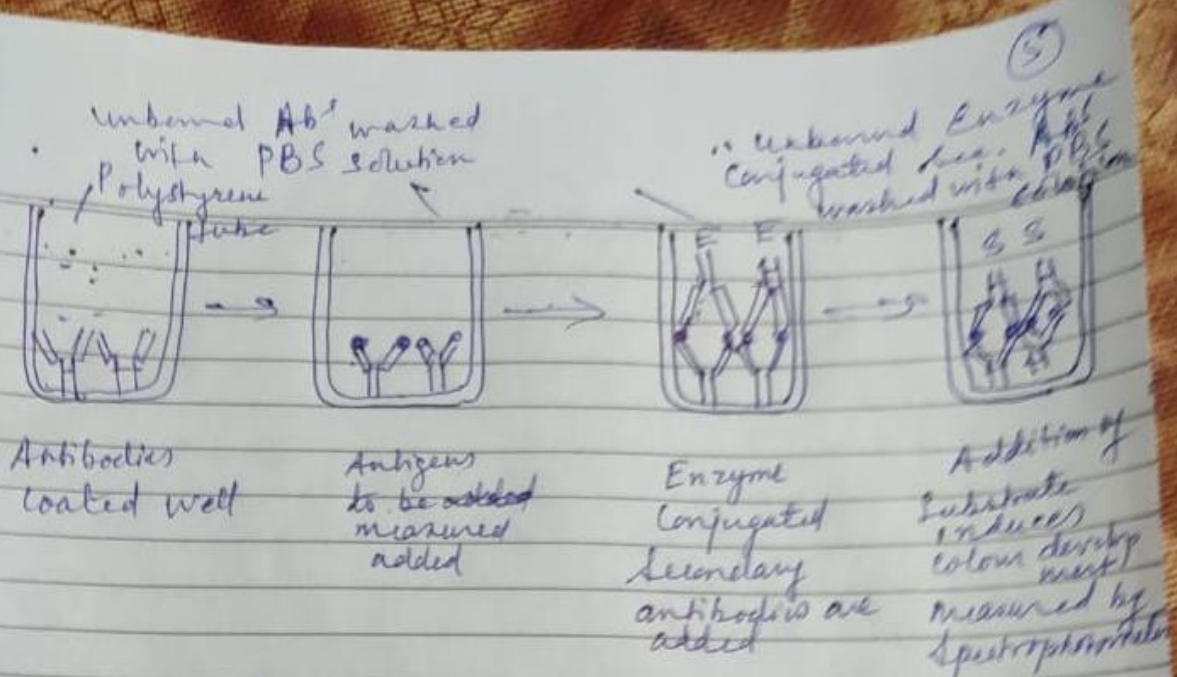 5
Unbound Ab's washed
with PBS solution
Polystyrene
tube
Unbound Enzyme
Conjugated Sec. Abs
washed with PBS
solution
E E
S S
Antibodies
coated well
Antigens
to be added
measured
added
Enzyme
Conjugated
Secondary
antibodies are
added
Addition of
Substrate
induces
colour develop
ment
measured by
Spectrophotometer